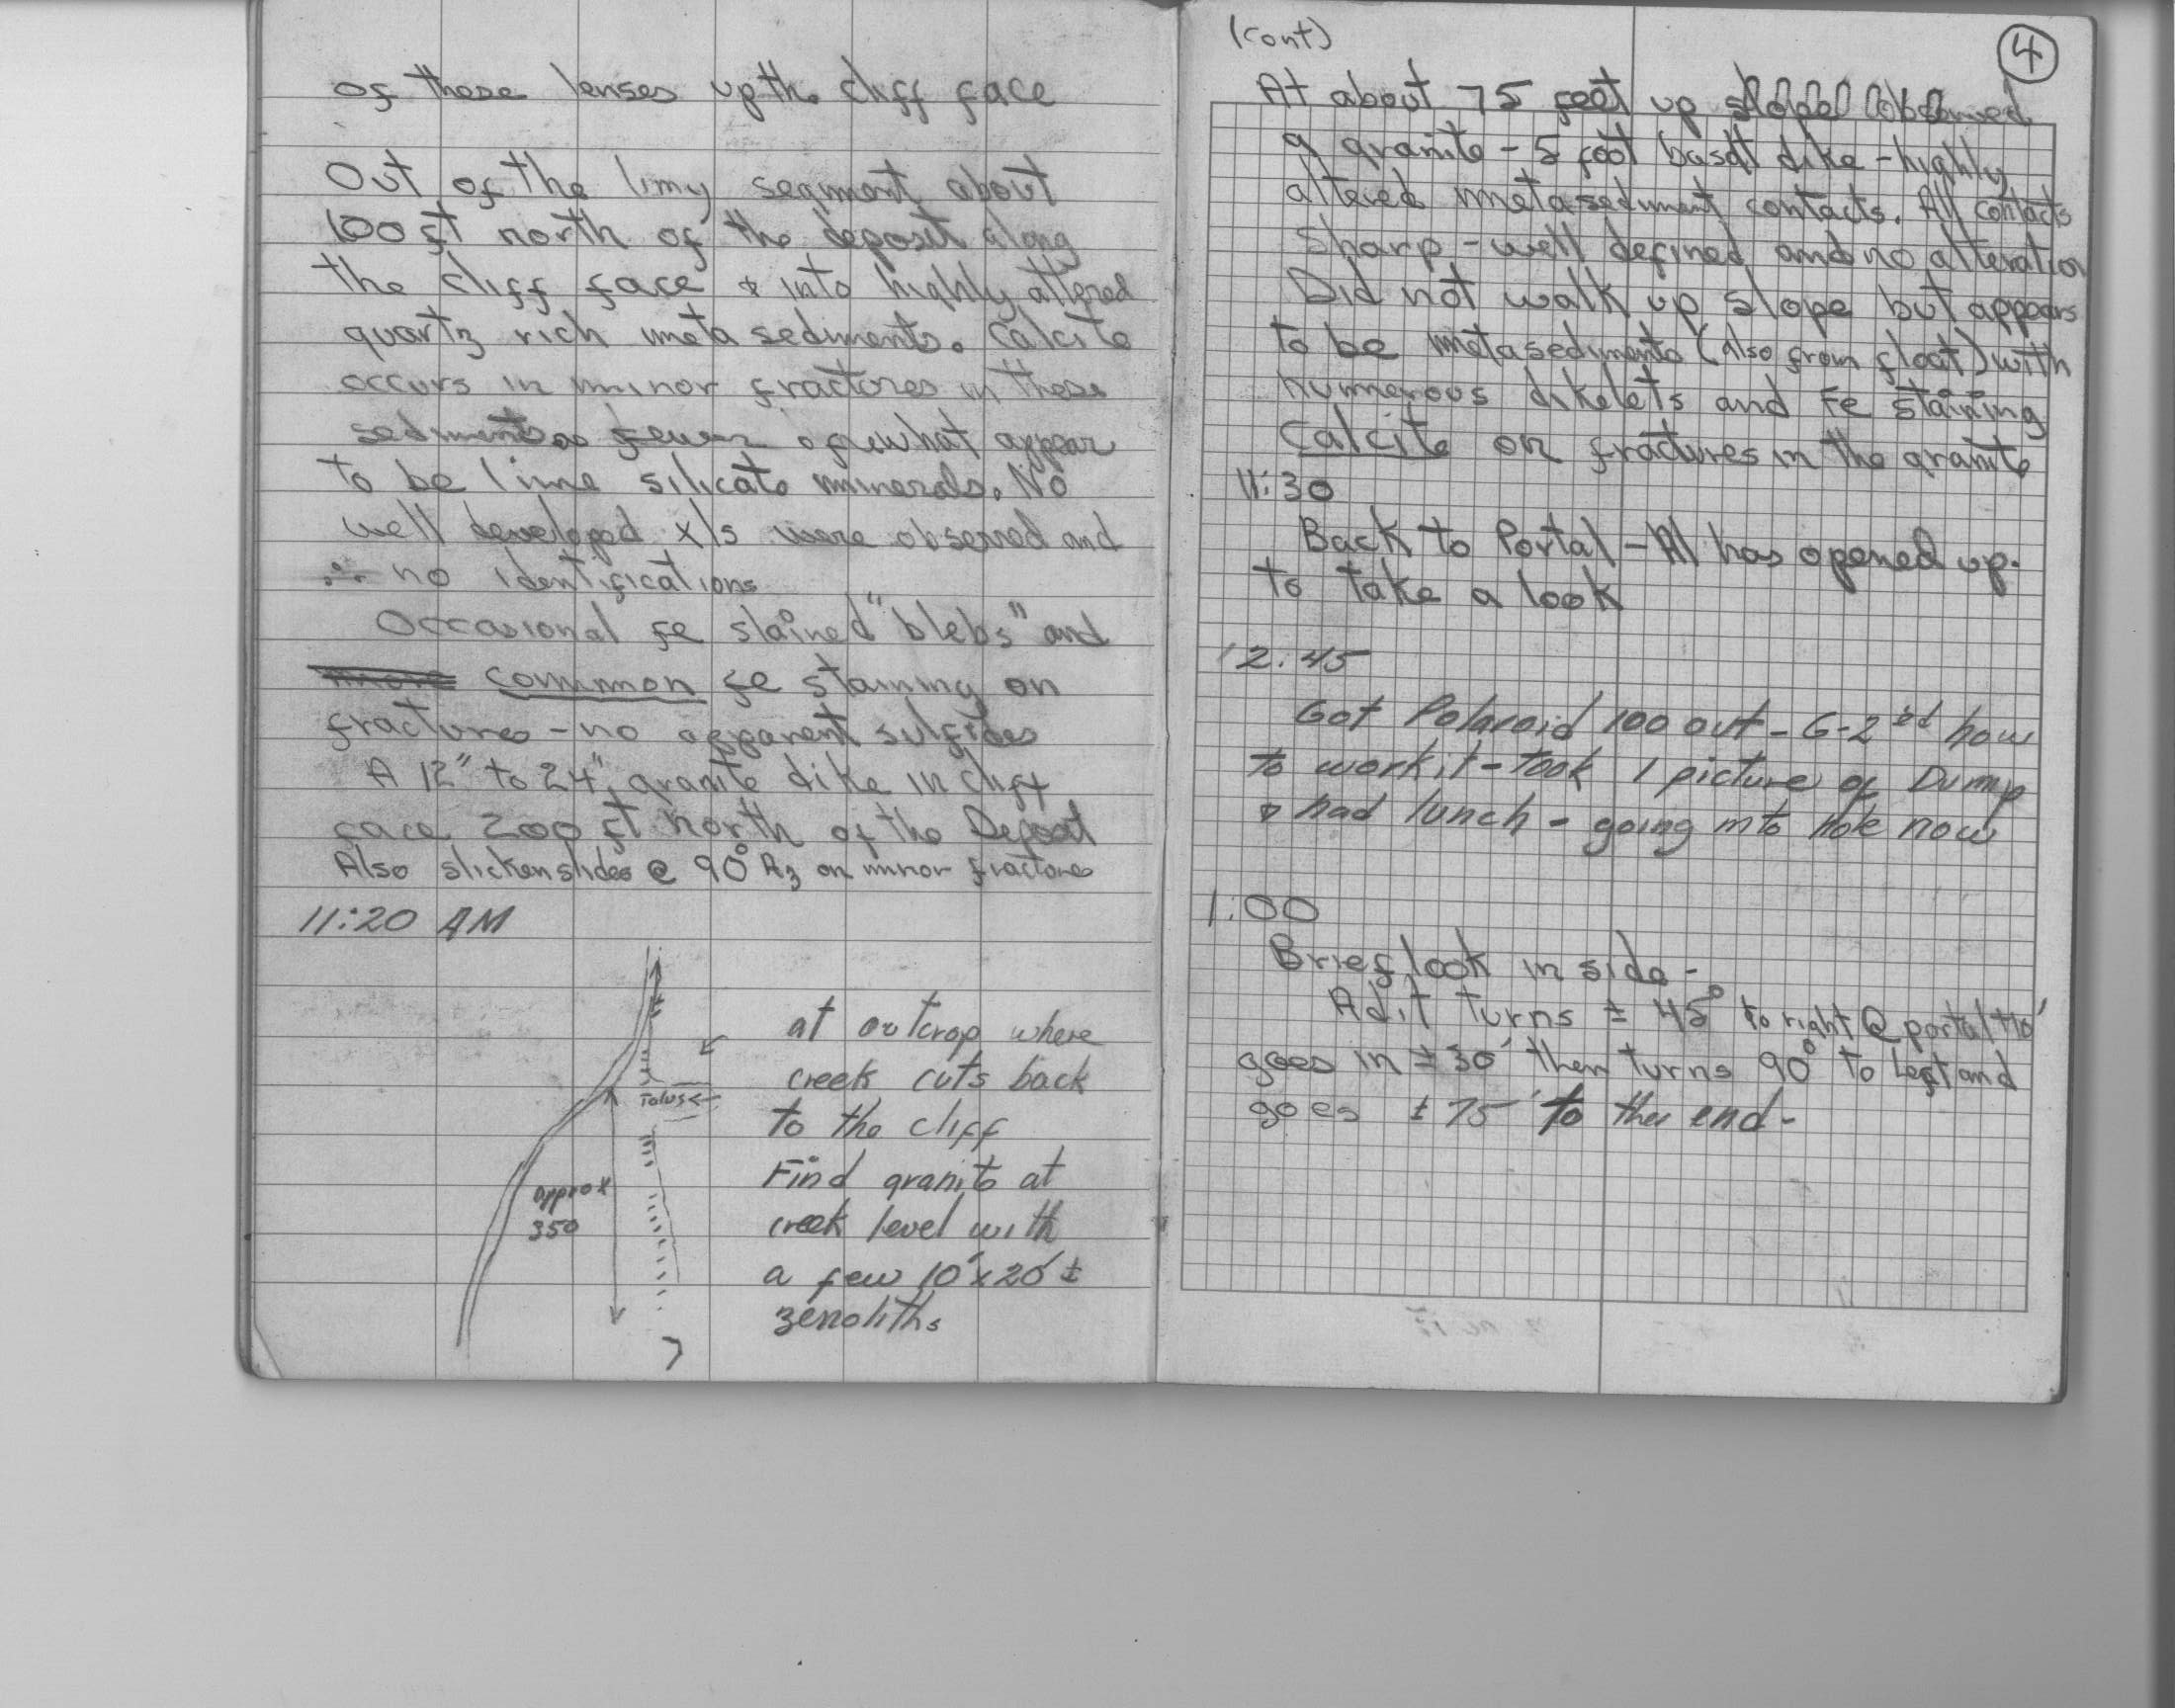 of these lenses up the cliff face
Out of the limy segment about
100 ft north of the deposit along
the cliff face & into highly altered
quartz rich meta sediments. Calcite
occurs in minor fractures in these
sediments as of what appear
to be lime silicate minerals. No
well developed xls were observed and
∴ no identifications
Occasional fe stained "blebs" and
common fe staining on
fractures - no apparent sulfides
A 12" to 24" granite dike in cliff
face 200 ft north of the Deposit
Also slickenslides @ 90° Az on minor fractures
11:20 AM
at outcrop where
creek cuts back
to the cliff
Find granite at
creek level with
a few 10'x20' ±
zenoliths
Talus
approx
350
(cont)
4
At about 75 feet up slope observed
a granite - 5 foot basalt dike - highly
altered metasediment contacts. All contacts
sharp - well defined and no alteration
Did not walk up slope but appears
to be metasediments (also from float) with
numerous dikelets and Fe staining
Calcite on fractures in the granite
11:30
Back to Portal - Al has opened up.
to take a look
12:45
Got Polaroid 100 out - G-2 ed how
to work it - took 1 picture of Dump
& had lunch - going into hole now
1:00
Brief look in side -
Adit turns ± 45° to right @ portal +10'
goes in ± 30' then turns 90° to left and
goes ± 75' to the end -